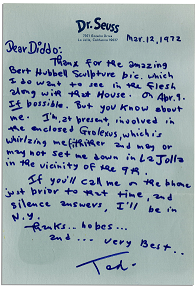 Dr. Seuss
La Jolla, California 92037
Mar. 12, 1972
Dear Diddo:
Thanx for the amazing
Bert Hubbell Sculpture pic. which
I do want to see in the flesh
along with the House. On Apr. 9.
If possible. But you know about
me. I'm, at present, involved in
the enclosed Grolexus, which is
whirlzing me thither and may or
may not set me down in La Jolla
in the vicinity of the 9th.
If you'll call me on the phone
just prior to that time, and
silence answers, I'll be in
N.Y.
Thanks.. hopes...
and... very Best..
Ted.